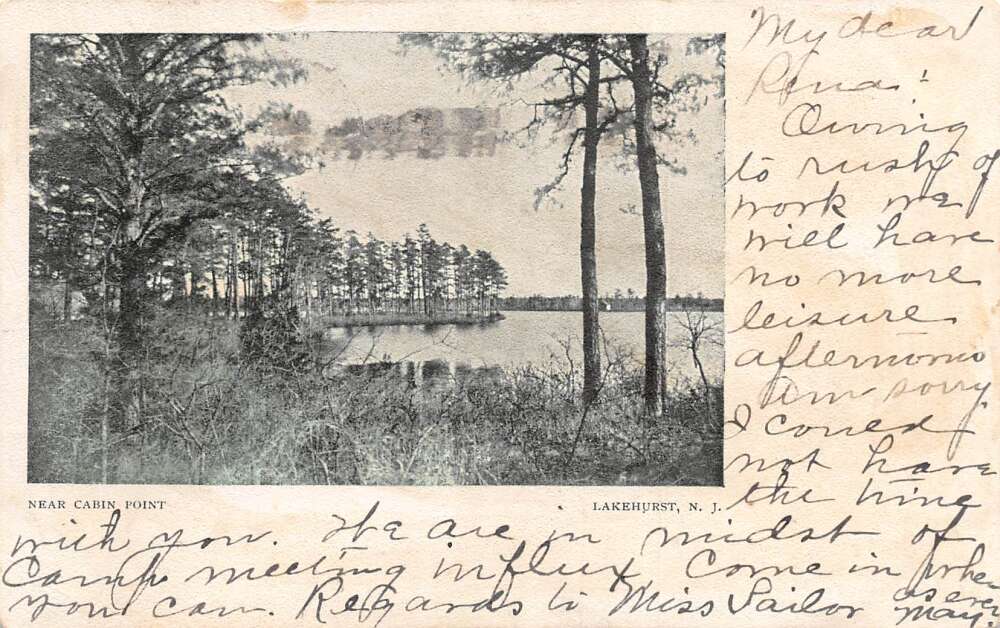 My dear
Rena!
Owing
to rush of
work we
will have
no more
leisure
afternoons
Am sorry
I could
not have
the time
NEAR CABIN POINT
LAKEHURST, N. J.
with you. We are in midst of
Camp meeting influx, Come in when
you can. Regards to Miss Sailor
as ever
May.